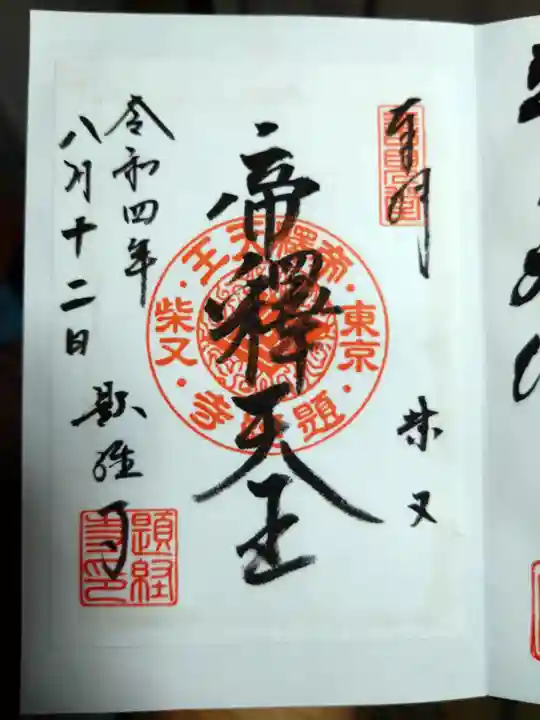 奉拝
柴又
帝釋天王
帝釋天王
東京
柴又
題経寺
令和四年
八月十二日
題経
寺印